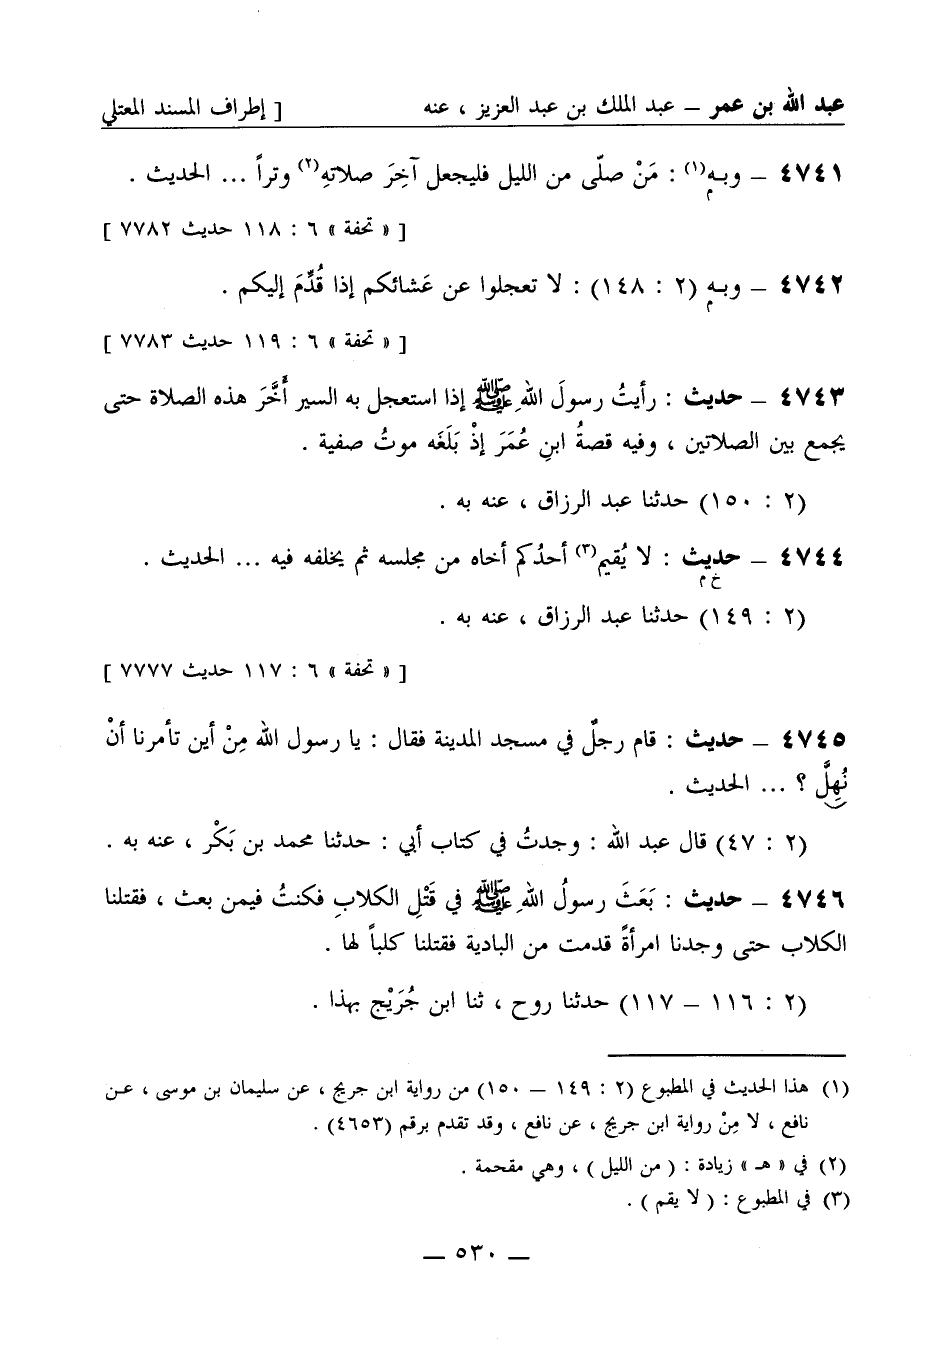 عبد الله بن عمر – عبد الملك بن عبد العزيز ، عنه [ إطراف المسند المعتلي
٤٧٤١ – وبـه(١) : مَنْ صلّى من الليل فليجعل آخِرَ صلاتهِ(٢) وتراً ... الحديث .
م
[ « تحفة » ٦ : ١١٨ حديث ٧٧٨٢ ]
٤٧٤٢ – وبـه (٢ : ١٤٨) : لا تعجلوا عن عَشائكم إذا قُدِّمَ إليكم .
م
[ « تحفة » ٦ : ١١٩ حديث ٧٧٨٣ ]
٤٧٤٣ – حديث : رأيتُ رسولَ اللهِ ﷺ إذا استعجل به السير أَخَّرَ هذه الصلاة حتى
يجمع بين الصلاتين ، وفيه قصةُ ابنِ عُمَرَ إذْ بَلَغَه موتُ صفية .
(٢ : ١٥٠) حدثنا عبد الرزاق ، عنه به .
٤٧٤٤ – حديث : لا يُقيم(٣) أحدُكم أخاه من مجلسه ثم يخلفه فيه ... الحديث .
خ م
(٢ : ١٤٩) حدثنا عبد الرزاق ، عنه به .
[ « تحفة » ٦ : ١١٧ حديث ٧٧٧٧ ]
٤٧٤٥ – حديث : قام رجلٌ في مسجد المدينة فقال : يا رسول الله مِنْ أين تأمرنا أنْ
نُهِلَّ ؟ ... الحديث .
(٢ : ٤٧) قال عبد الله : وجدتُ في كتاب أبي : حدثنا محمد بن بَكْر ، عنه به .
٤٧٤٦ – حديث : بَعَثَ رسولُ اللهِ ﷺ في قَتْلِ الكلابِ فكنتُ فيمن بعث ، فقتلنا
الكلاب حتى وجدنا امرأةً قدمت من البادية فقتلنا كلباً لها .
(٢ : ١١٦ – ١١٧) حدثنا روح ، ثنا ابن جُرَيْج بهذا .
(١) هذا الحديث في المطبوع (٢ : ١٤٩ – ١٥٠) من رواية ابن جريج ، عن سليمان بن موسى ، عـن
نافع ، لا مِنْ رواية ابن جريج ، عن نافع ، وقد تقدم برقم (٤٦٥٣) .
(٢) في « هـ » زيادة : ( من الليل ) ، وهي مقحمة .
(٣) في المطبوع : ( لا يقم ) .
– ٥٣٠ –